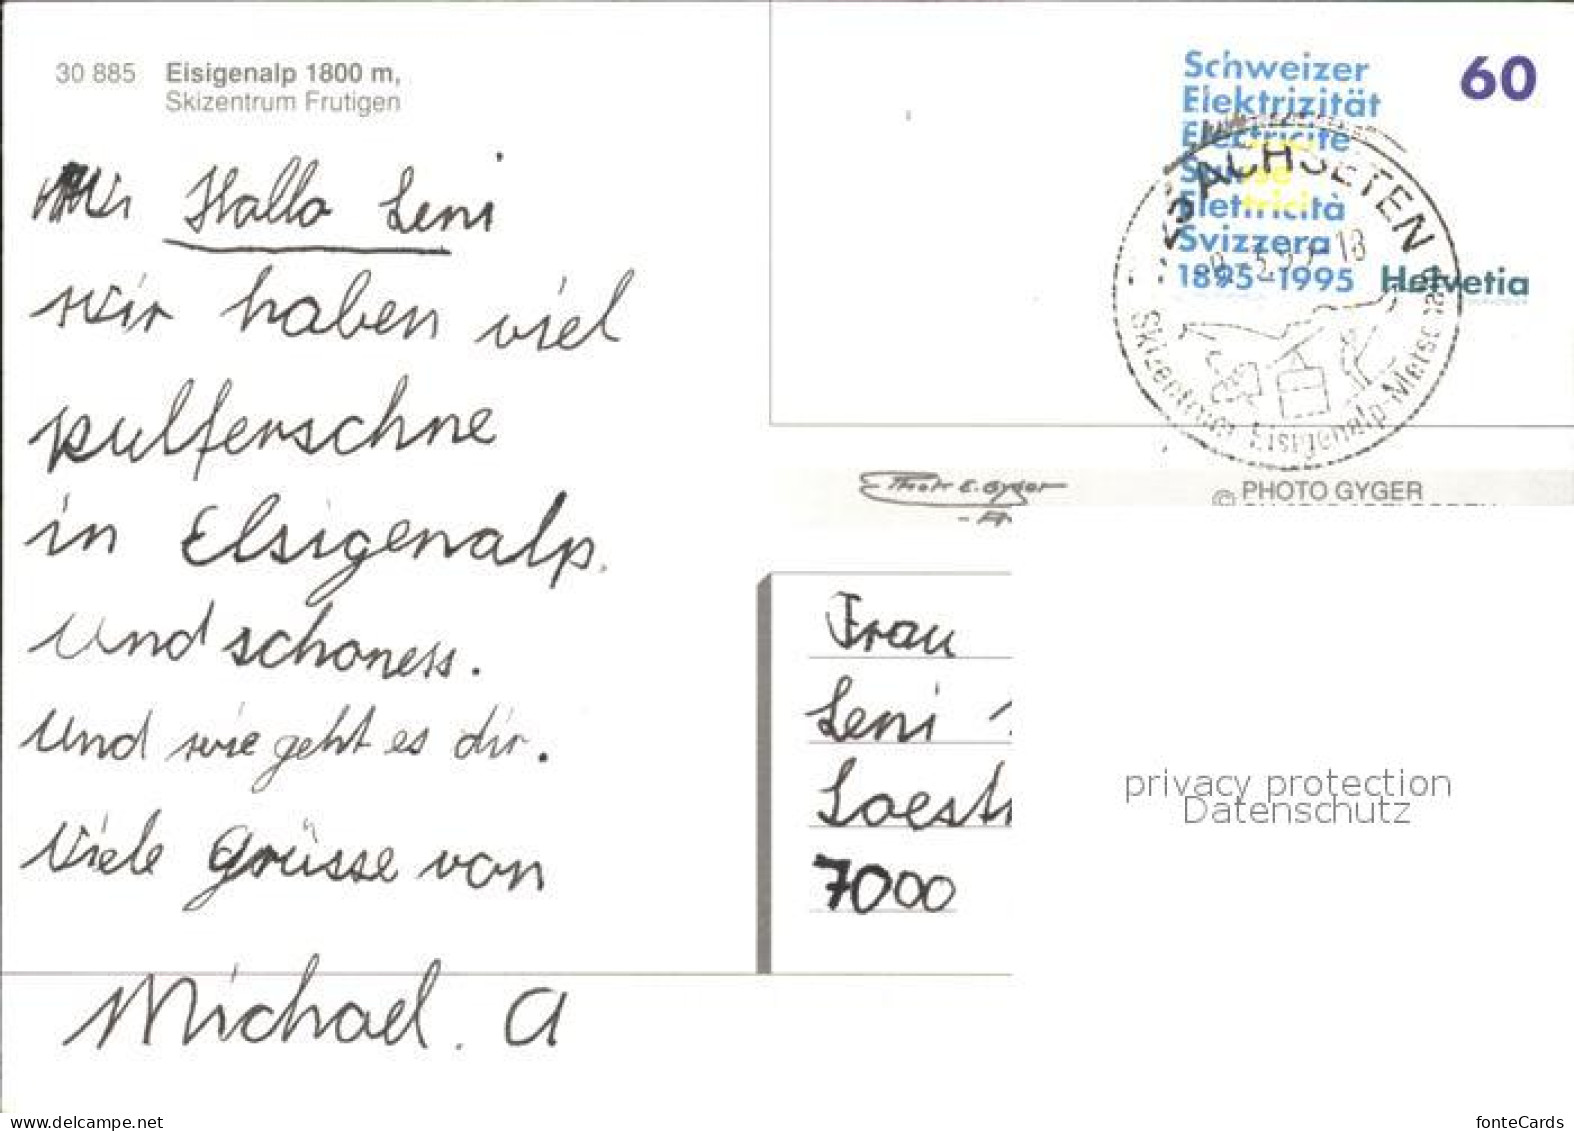 30 885 Eisigenalp 1800 m,
Skizentrum Frutigen
Hallo Leni
wir haben viel
pulferschne
in Elsigenalp.
Und schoness.
Und wie geht es dir.
Viele Grüsse von
Michael. A
Schweizer
Elektrizität
Electricité
Suisse
Elettricità
Svizzera
1895-1995
60
Helvetia
ACHSETEN
18
Skizentrum Eisigenalp-Metsch
Photo E. Gyger
© PHOTO GYGER
Frau
Leni
Loestr
7000
privacy protection
Datenschutz
www.delcampe.net
fonteCards